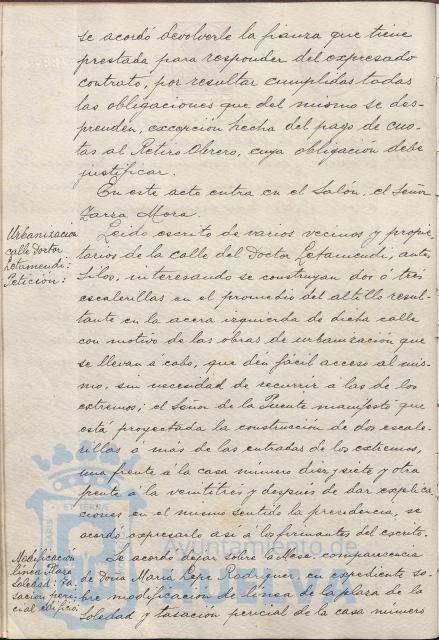 se acordó devolverle la fianza que tiene
prestada para responder del expresado
contrato, por resultar cumplidas todas
las obligaciones que del mismo se des-
prenden, excepción hecha del pago de cuo-
tas al Retiro Obrero, cuya obligación debe
justificar.
En este acto entra en el Salón, el Señor
Zarza Mora.
Urbanización
calle Doctor
Letamendi:
Petición:
Leido escrito de varios vecinos y propie-
tarios de la calle del Doctor Letamendi, antes
Silos, interesando se construyan dos ó tres
escalerillas en el promedio del altillo resul-
tante en la acera izquierda de dicha calle
con motivo de las obras de urbanización que
se llevan á cabo, que dén fácil acceso al mis-
mo, sin necesidad de recurrir á las de los
extremos; el Señor de la Puente manifestó que
está proyectada la construcción de dos escale-
rillas á más de las entradas de los extremos,
una frente á la casa número diez y siete y otra
frente á la veintitres y despues de dar explica-
ciones en el mismo sentido la presidencia, se
acordó expresarlo asi á los firmantes del escrito.
Modificación
línea Plaza
Soledad: Ta-
sación peri-
cial edificio
Se acordó dejar sobre la Mesa comparecencia
de Doña Maria Pepe Rodriguez, en expediente so-
bre modificación de línea de la plaza de la
Soledad y tasación pericial de la casa número
Ayuntamiento
HUELVA